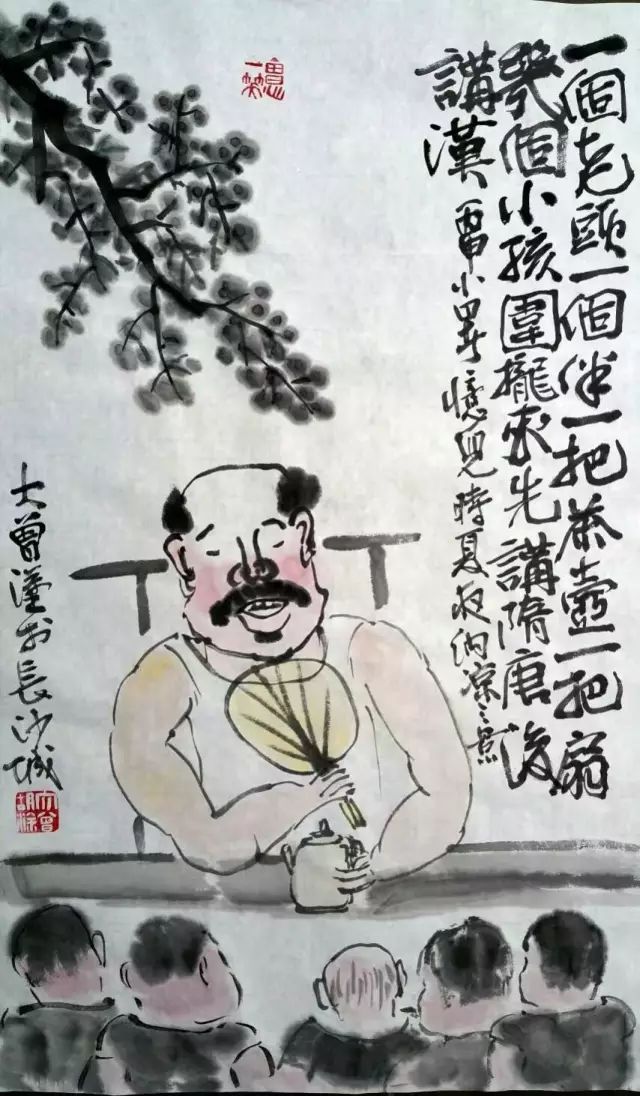 一個老頭一個伴一把茶壺一把扇
幾個小孩圍攏來先講隋唐後
講漢
小 憶兒時夏夜納凉之景
會心
一笑
大曾 於長沙城
大曾
胡涂